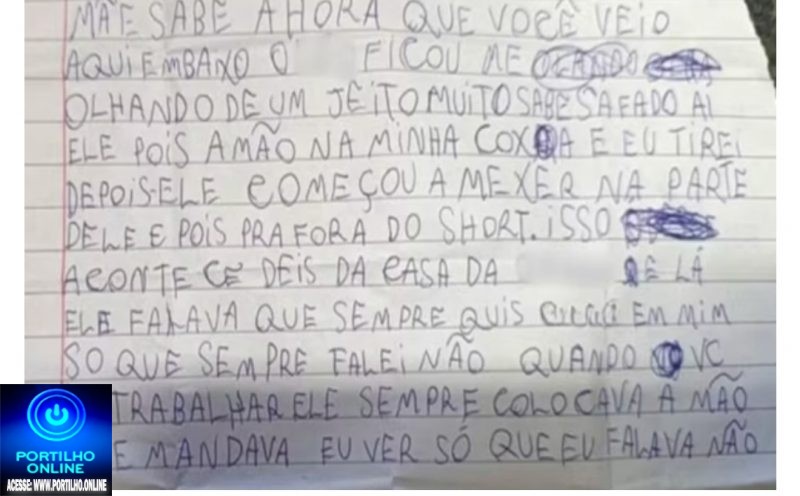 MÃE SABE AHORA QUE VOCÊ VEIO
AQUI EMBAIXO O FICOU ME
OLHANDO DE UM JEITO MUITO SABE SAFADO AI
ELE POIS A MÃO NA MINHA COXA E EU TIREI
DEPOIS ELE COMEÇOU A MEXER NA PARTE
DELE E POIS PRA FORA DO SHORT. ISSO
ACONTECE DEIS DA CASA DA E LÁ
ELE FALAVA QUE SEMPRE QUIS EM MIM
SO QUE SEMPRE FALEI NÃO QUANDO VC
TRABALHAR ELE SEMPRE COLOCAVA A MÃO
E MANDAVA EU VER SÓ QUE EU FALAVA NÃO
PORTILHO
ONLINE
ACESSE: WWW.PORTILHO.ONLINE